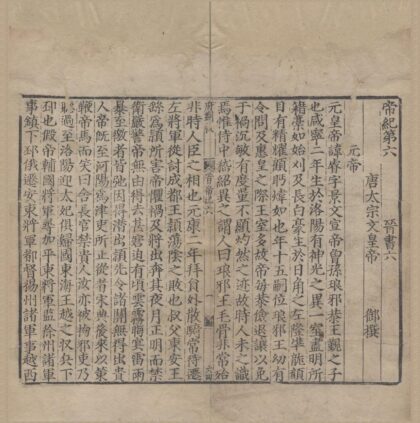 帝紀第六　晉書六
唐太宗文皇帝　御撰
元帝
元皇帝諱睿字景文宣帝曾孫琅邪恭王覲之子
也咸寧二年生於洛陽有神光之異一室盡明所
藉藁如始刈及長白豪生於日角之左隆準龍顏
目有精曜顧眄煒如也年十五嗣位琅邪王幼有
令問及惠皇之際王室多故帝每恭儉退讓以免
于禍沉敏有度量不顯灼然之迹故時人未之識
焉惟侍中嵇紹異之謂人曰琅邪王毛骨非常殆
非時人臣之相也元康二年拜員外散騎常侍遷
左將軍從討成都王穎蕩陰之敗也叔父東安王
繇為穎所害帝懼禍及將出奔其夜月正明而禁
衛嚴警帝無由得去甚窘迫有頃雲霧晦冥雷雨
暴至徼者皆弛因得潛出穎先令諸關無得出貴
人帝既至河陽為津吏所止從者宋典後來以策
鞭帝馬而笑曰舍長官禁貴人汝亦被拘邪吏乃
聽過至洛陽迎太妃俱歸國東海王越之收兵下
邳也假帝輔國將軍尋加平東將軍監徐州諸軍
事鎮下邳俄遷安東將軍都督揚州諸軍事越西